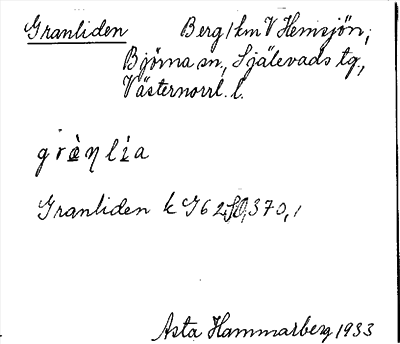 Granliden Berg 1 km V Hemsjön,
Björna sn., Själevads tg.,
Västernorrl. l.
grànlìa
Granliden k I 62 370,1
Asta Hammarberg 1933